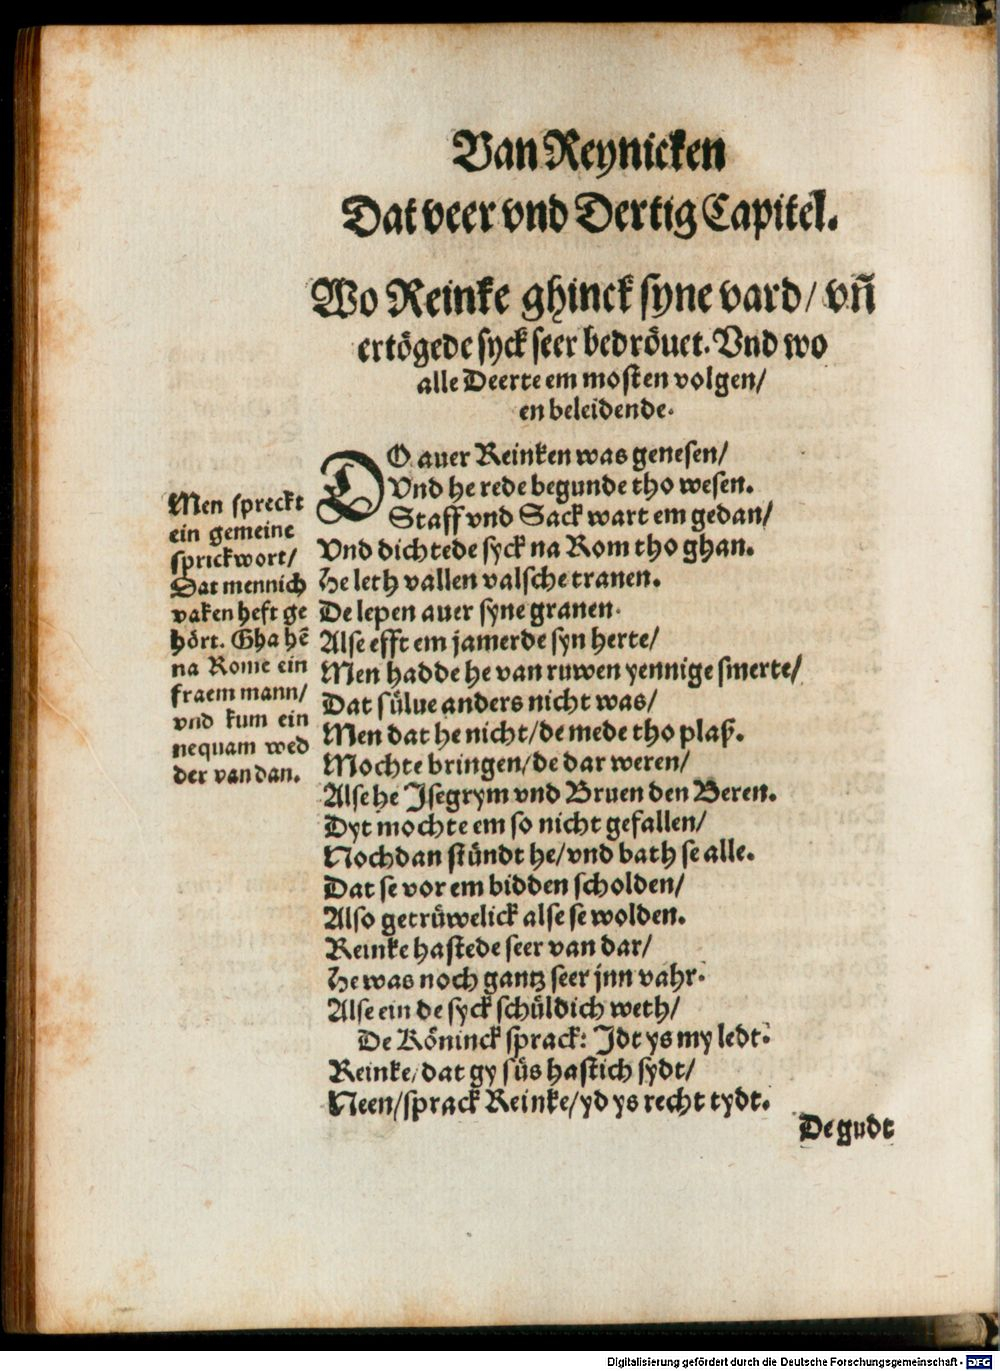 Van Reynicken
Dat veer vnd Dertig Capitel.
Wo Reinke ghinck syne vard/ vñ
ertögede syck seer bedröuet. Vnd wo
alle Deerte em mosten volgen/
en beleidende.
DO auer Reinken was genesen/
Vnd he rede begunde tho wesen.
Staff vnd Sack wart em gedan/
Vnd dichtede syck na Rom tho ghan.
He leth vallen valsche tranen.
De lepen auer syne granen.
Alse efft em jamerde syn herte/
Men hadde he van ruwen yennige smerte/
Dat sülue anders nicht was/
Men dat he nicht/ de mede tho plaß.
Mochte bringen/ de dar weren/
Alse he Isegrym vnd Bruen den Beren.
Dyt mochte em so nicht gefallen/
Nochdan stündt he/ vnd bath se alle.
Dat se vor em bidden scholden/
Also getrüwelick alse se wolden.
Reinke hastede seer van dar/
He was noch gantz seer jnn vahr.
Alse ein de syck schüldich weth/
De Köninck sprack: Idt ys my ledt.
Reinke/ dat gy süs hastich sydt/
Neen/ sprack Reinke/ yd ys recht tydt.
De gudt
Men spreckt
ein gemeine
sprickwort/
Dat mennich
vaken heft ge
hört. Gha hẽ
na Rome ein
fraem mann/
vnd kum ein
nequam wed
der van dan.
Digitalisierung gefördert durch die Deutsche Forschungsgemeinschaft - DFG